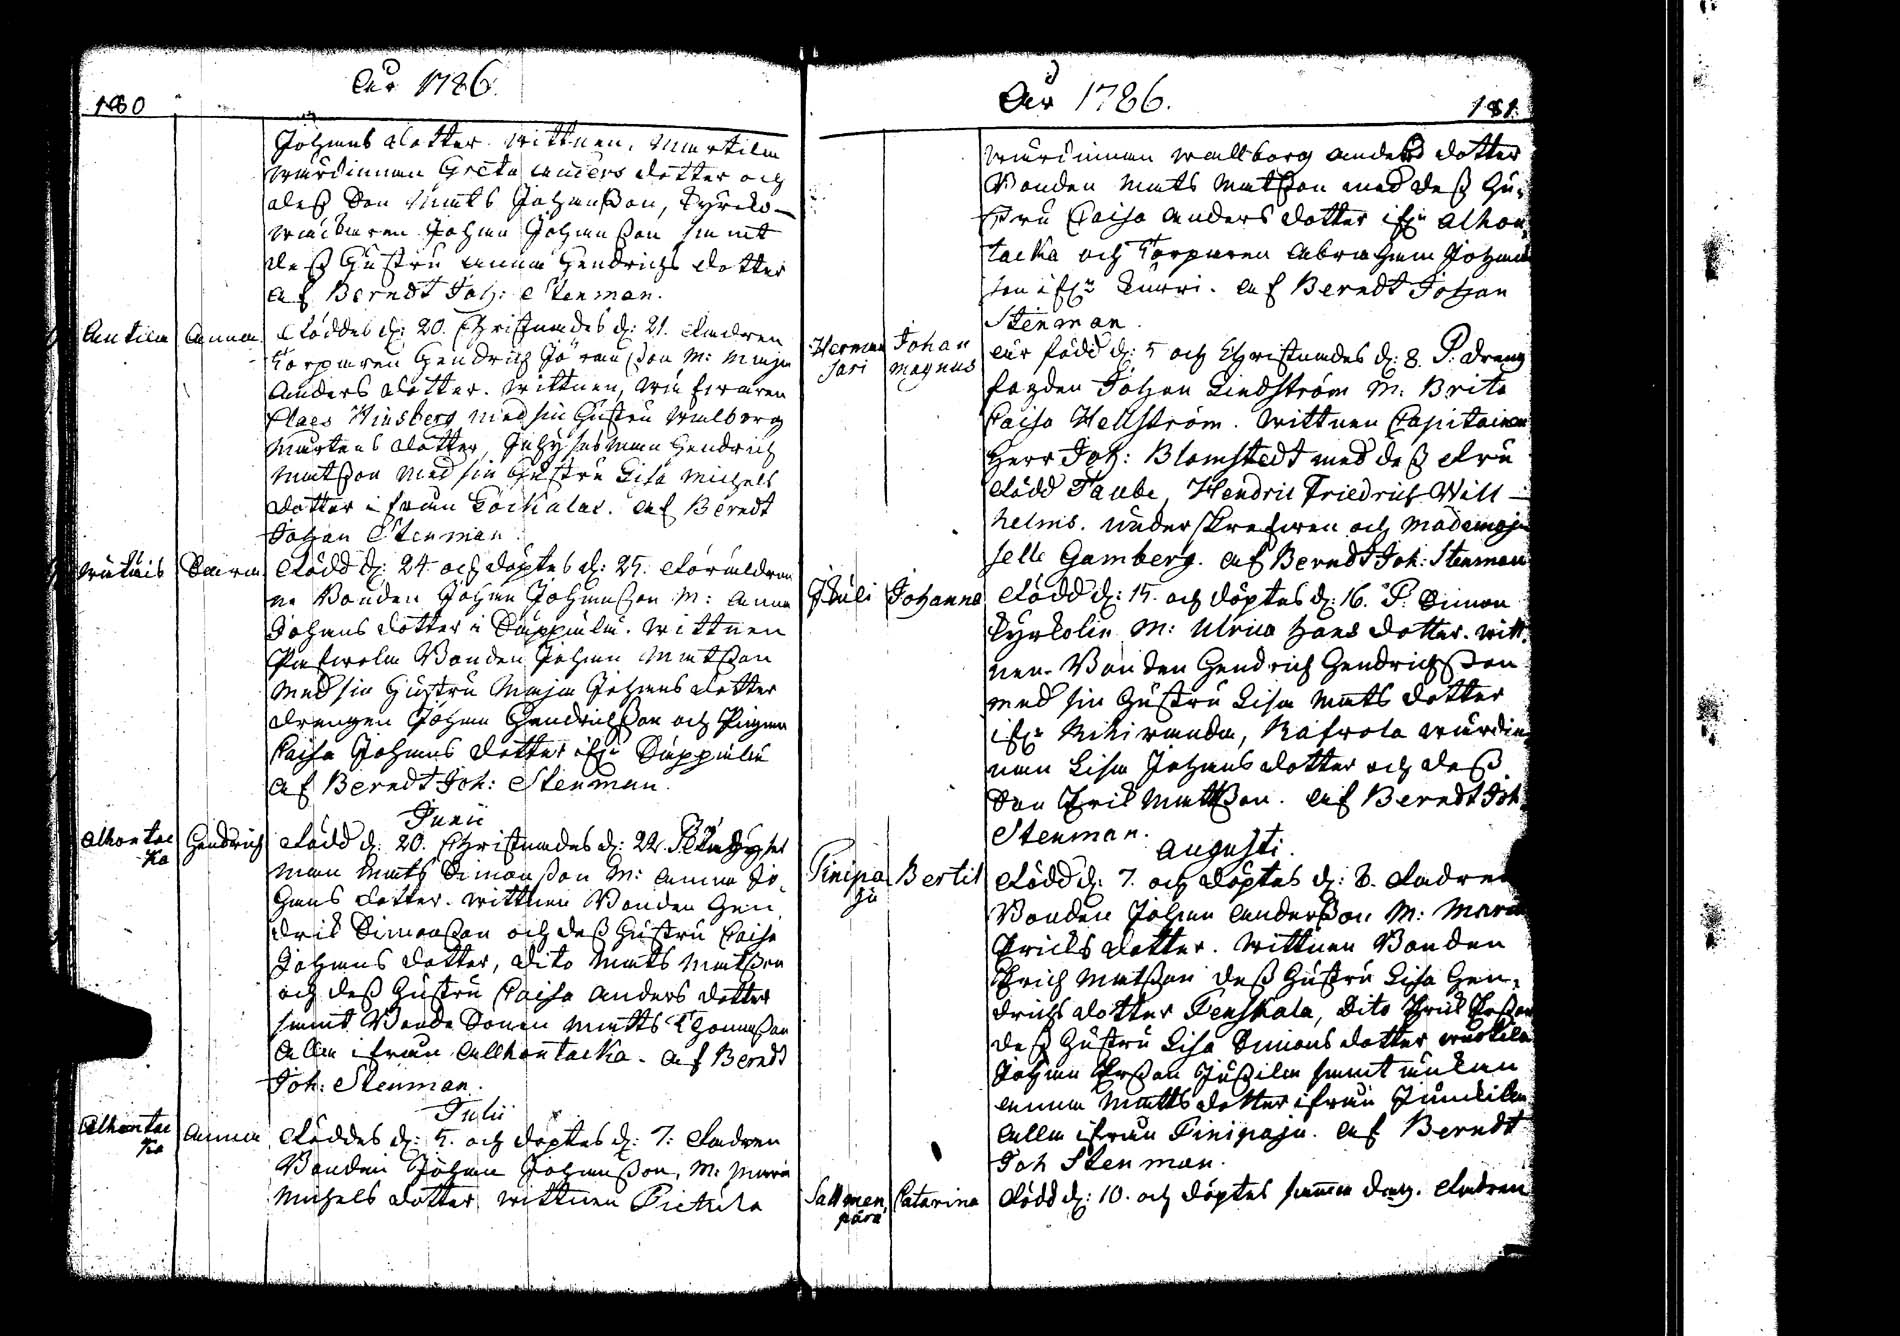 180
Åhr 1786.
Johans dotter. Wittnen, Martila
wärdinnan Greta Anders dotter och
deß Son Mats Johanßon, Kyrcko-
wäcktaren Johan Johanßon samt
deß Hustru Anna Hendrichs dotter
af Berndt Joh: Stenman.
Anttila Anna
Föddes d: 20. Christnades d: 21. Fadren
Torparen Hendrich Jöranßon M: Maja
Anders dotter. Wittnen,
Claes Winsberg med sin Hustru Walborg
Mårtens dotter, Inhyses Man Hendrich
Matßon med sin Hustru Lisa Michels
dotter ifrån af Berndt
Johan Stenman.
Född d: 24 och döptes d: 25. Föräldrar
ne Bonden Johan Johanßon M: Anna
Johans dotter i Wittnen
Bonden Johan Matßon
med sin Hustru Maja Johans dotter
Drengen Johan Hendrichßon och Pigan
Caisa Johans dotter ifr:
af Berndt Joh: Stenman.
Junii
Alhontac
ka Hendrich
Född d: 20. Christnades d: 22. P. Inhyses
man Mats Simonßon M: Anna Jo-
hans dotter. Wittnen Bonden Hen
drik Simonßon och deß Hustru Caisa
Johans dotter, dito Mats Matßon
och deß Hustru Caisa Anders dotter
samt Bonde Sonen Matts Thomaßon
Alla ifrån Allhontacka. af Berndt
Joh: Stenman.
Julii
Alhontac
ka Anna
Föddes d: 5. och döptes d: 7: Fadren
Bonden Johan Johanßon, M: Maria
Michels dotter, Wittnen Pietila
Åhr 1786.
181.
wärdinnan Wallborg Anders dotter
Bonden Mats Matßon med deß Hu-
stru Caisa Anders dotter ifr: Alhon,
tacka och Torparen Abraham Johans
son ifr: Kurri. af Berndt Johan
Stenman.
Herman
sari Johan
Magnus
är född d: 5 och Christnades d: 8. P. Dreng
fogden Johan Lindström M: Brita
Caisa Hellström. Wittnen Capitainen
Herr Joh: Blomstedt med deß Fru
Född Taube, Hendric Friedrich Will-
helms. underskrefwen och Mademoj-
selle Gamberg. af Berndt Joh: Stenman
Johanna
Född d: 15. och döptes d: 16. P. Simon
Kyrkolin M: Ulrica Hans dotter. Witt-
nen. Bonden Hendrich Hendrichßon
med sin Hustru Lisa Mats dotter
ifr: Rafwola wärdin
nan Lisa Johans dotter och deß
Son Erik Mattßon. af Berndt Joh:
Stenman.
Augusti.
Pinipa
ju Bertil
Född d: 7. och döptes d: 8. Fadren
Bonden Johan Anderßon M: Maria
Ericks dotter. Wittnen Bonden
Erich Matßon deß Hustru Lisa Hen-
drichs dotter Penskala, dito Erick
deß Hustru Lisa Simons dotter Martila
Johan Erßon Jußila samt änkan
Anna Matts dotter ifrån Junkila
Alla ifrån Pinipaju. af Berndt
Joh Stenman.
Sallmen,
pära Catarina
Född d: 10. och döptes samma dag. Fadren